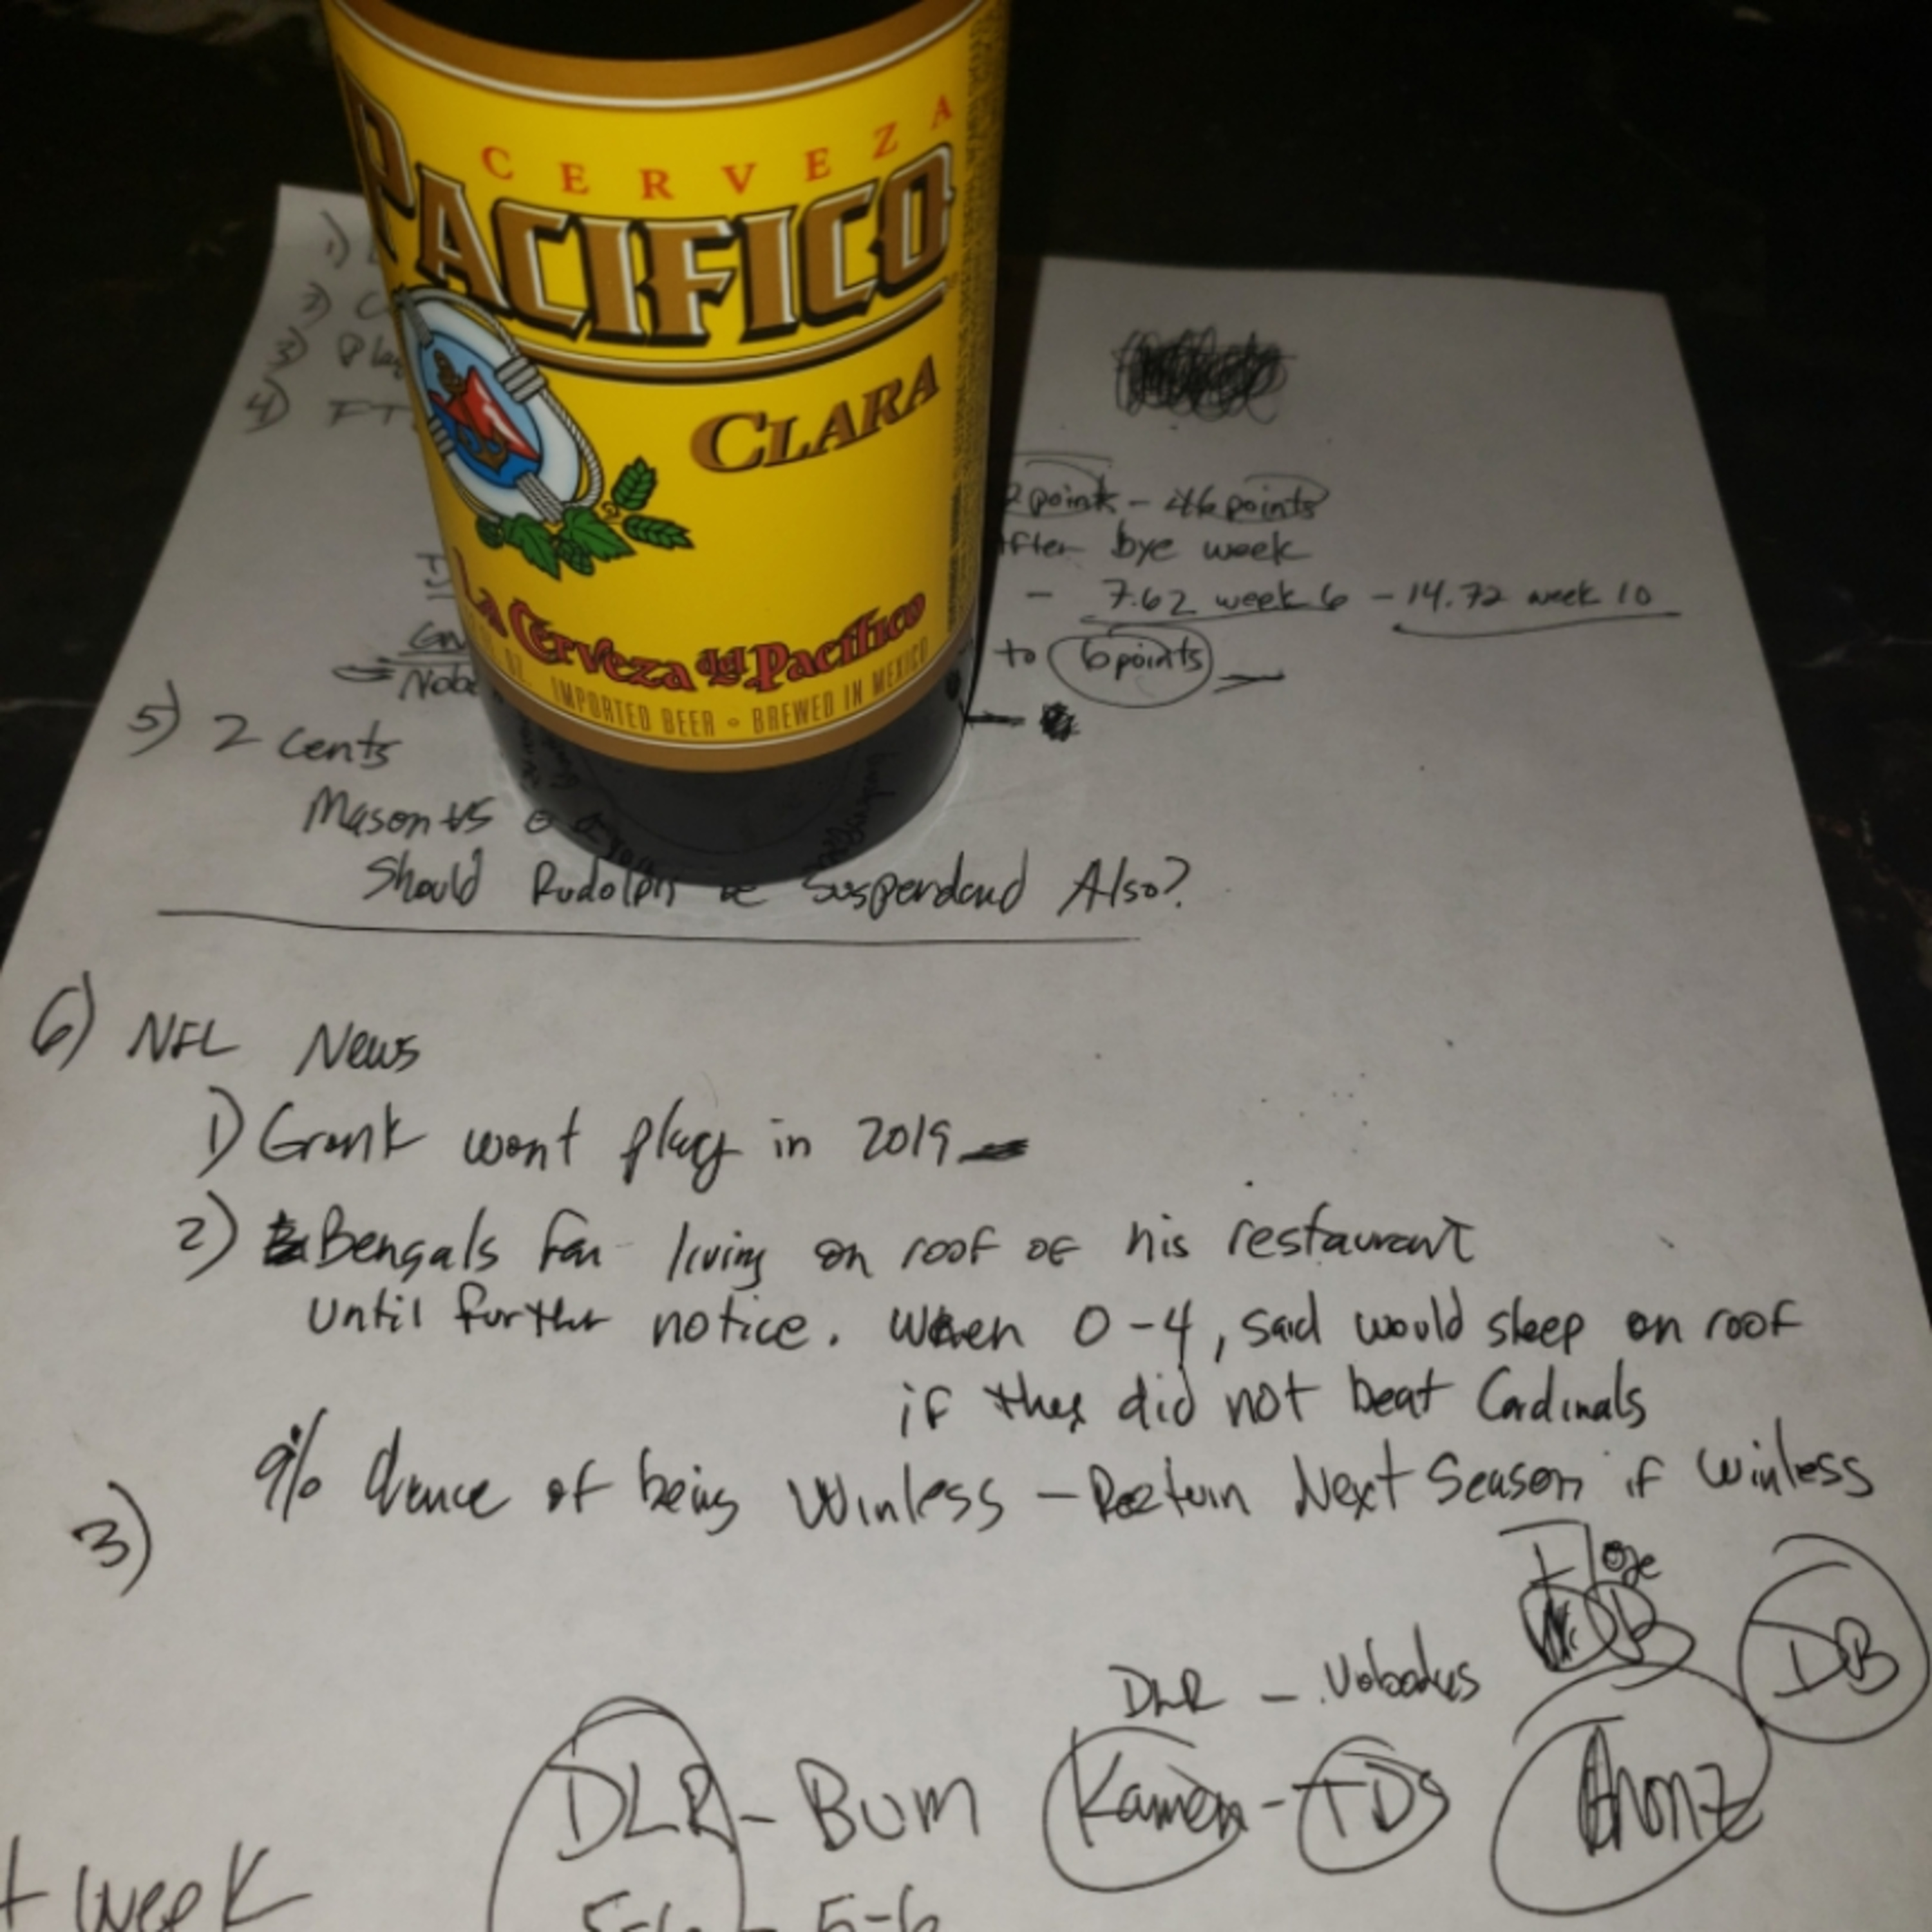 CERVEZA
PACIFICO
CLARA
La Cerveza del Pacifico
OZ. IMPORTED BEER • BREWED IN MEXICO
1)
2) C
3) Pla
4) FT
2 points - 46 points
after bye week
- 7.62 week 6 - 14.72 week 10
to 6 points
5) 2 Cents
Mason vs
Should Rudolph be Suspendend Also?
6) NFL News
1) Gronk wont play in 2019
2) Bengals fan living on roof of his restaurant
until further notice. When 0-4, said would sleep on roof
if they did not beat Cardinals
9% Chance of being Winless - Return Next Season if Winless
3)
DB
DB
DLR -
DLR - Bum Kamen - TDS
week
5-6 - 5-6